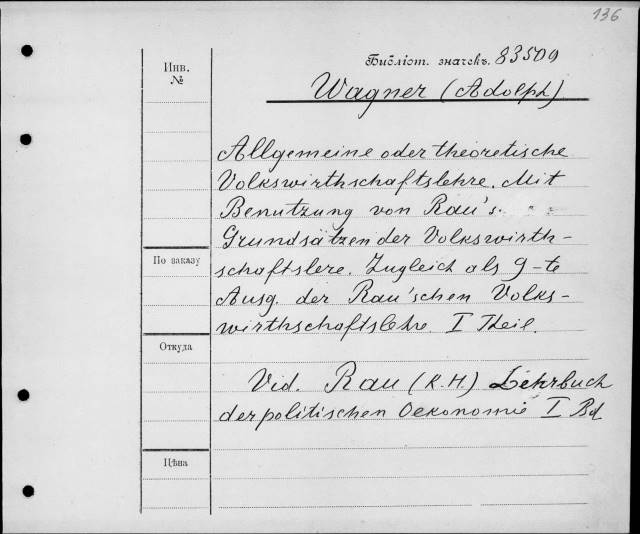 136
Инв.
№
Бібліот. значекъ. 83509
Wagner (Adolph)
Allgemeine oder theoretische
Volkswirthschaftslehre. Mit
Benutzung von Rau's
Grundsätzen der Volkswirth-
schaftslere. Zugleich als 9-te
Ausg. der Rau'schen Volks-
wirthschaftslehre. I Theil.
По заказу
Откуда
Vid. Rau (K. H.) Lehrbuch
der politischen Oekonomie I Bd
Цѣна